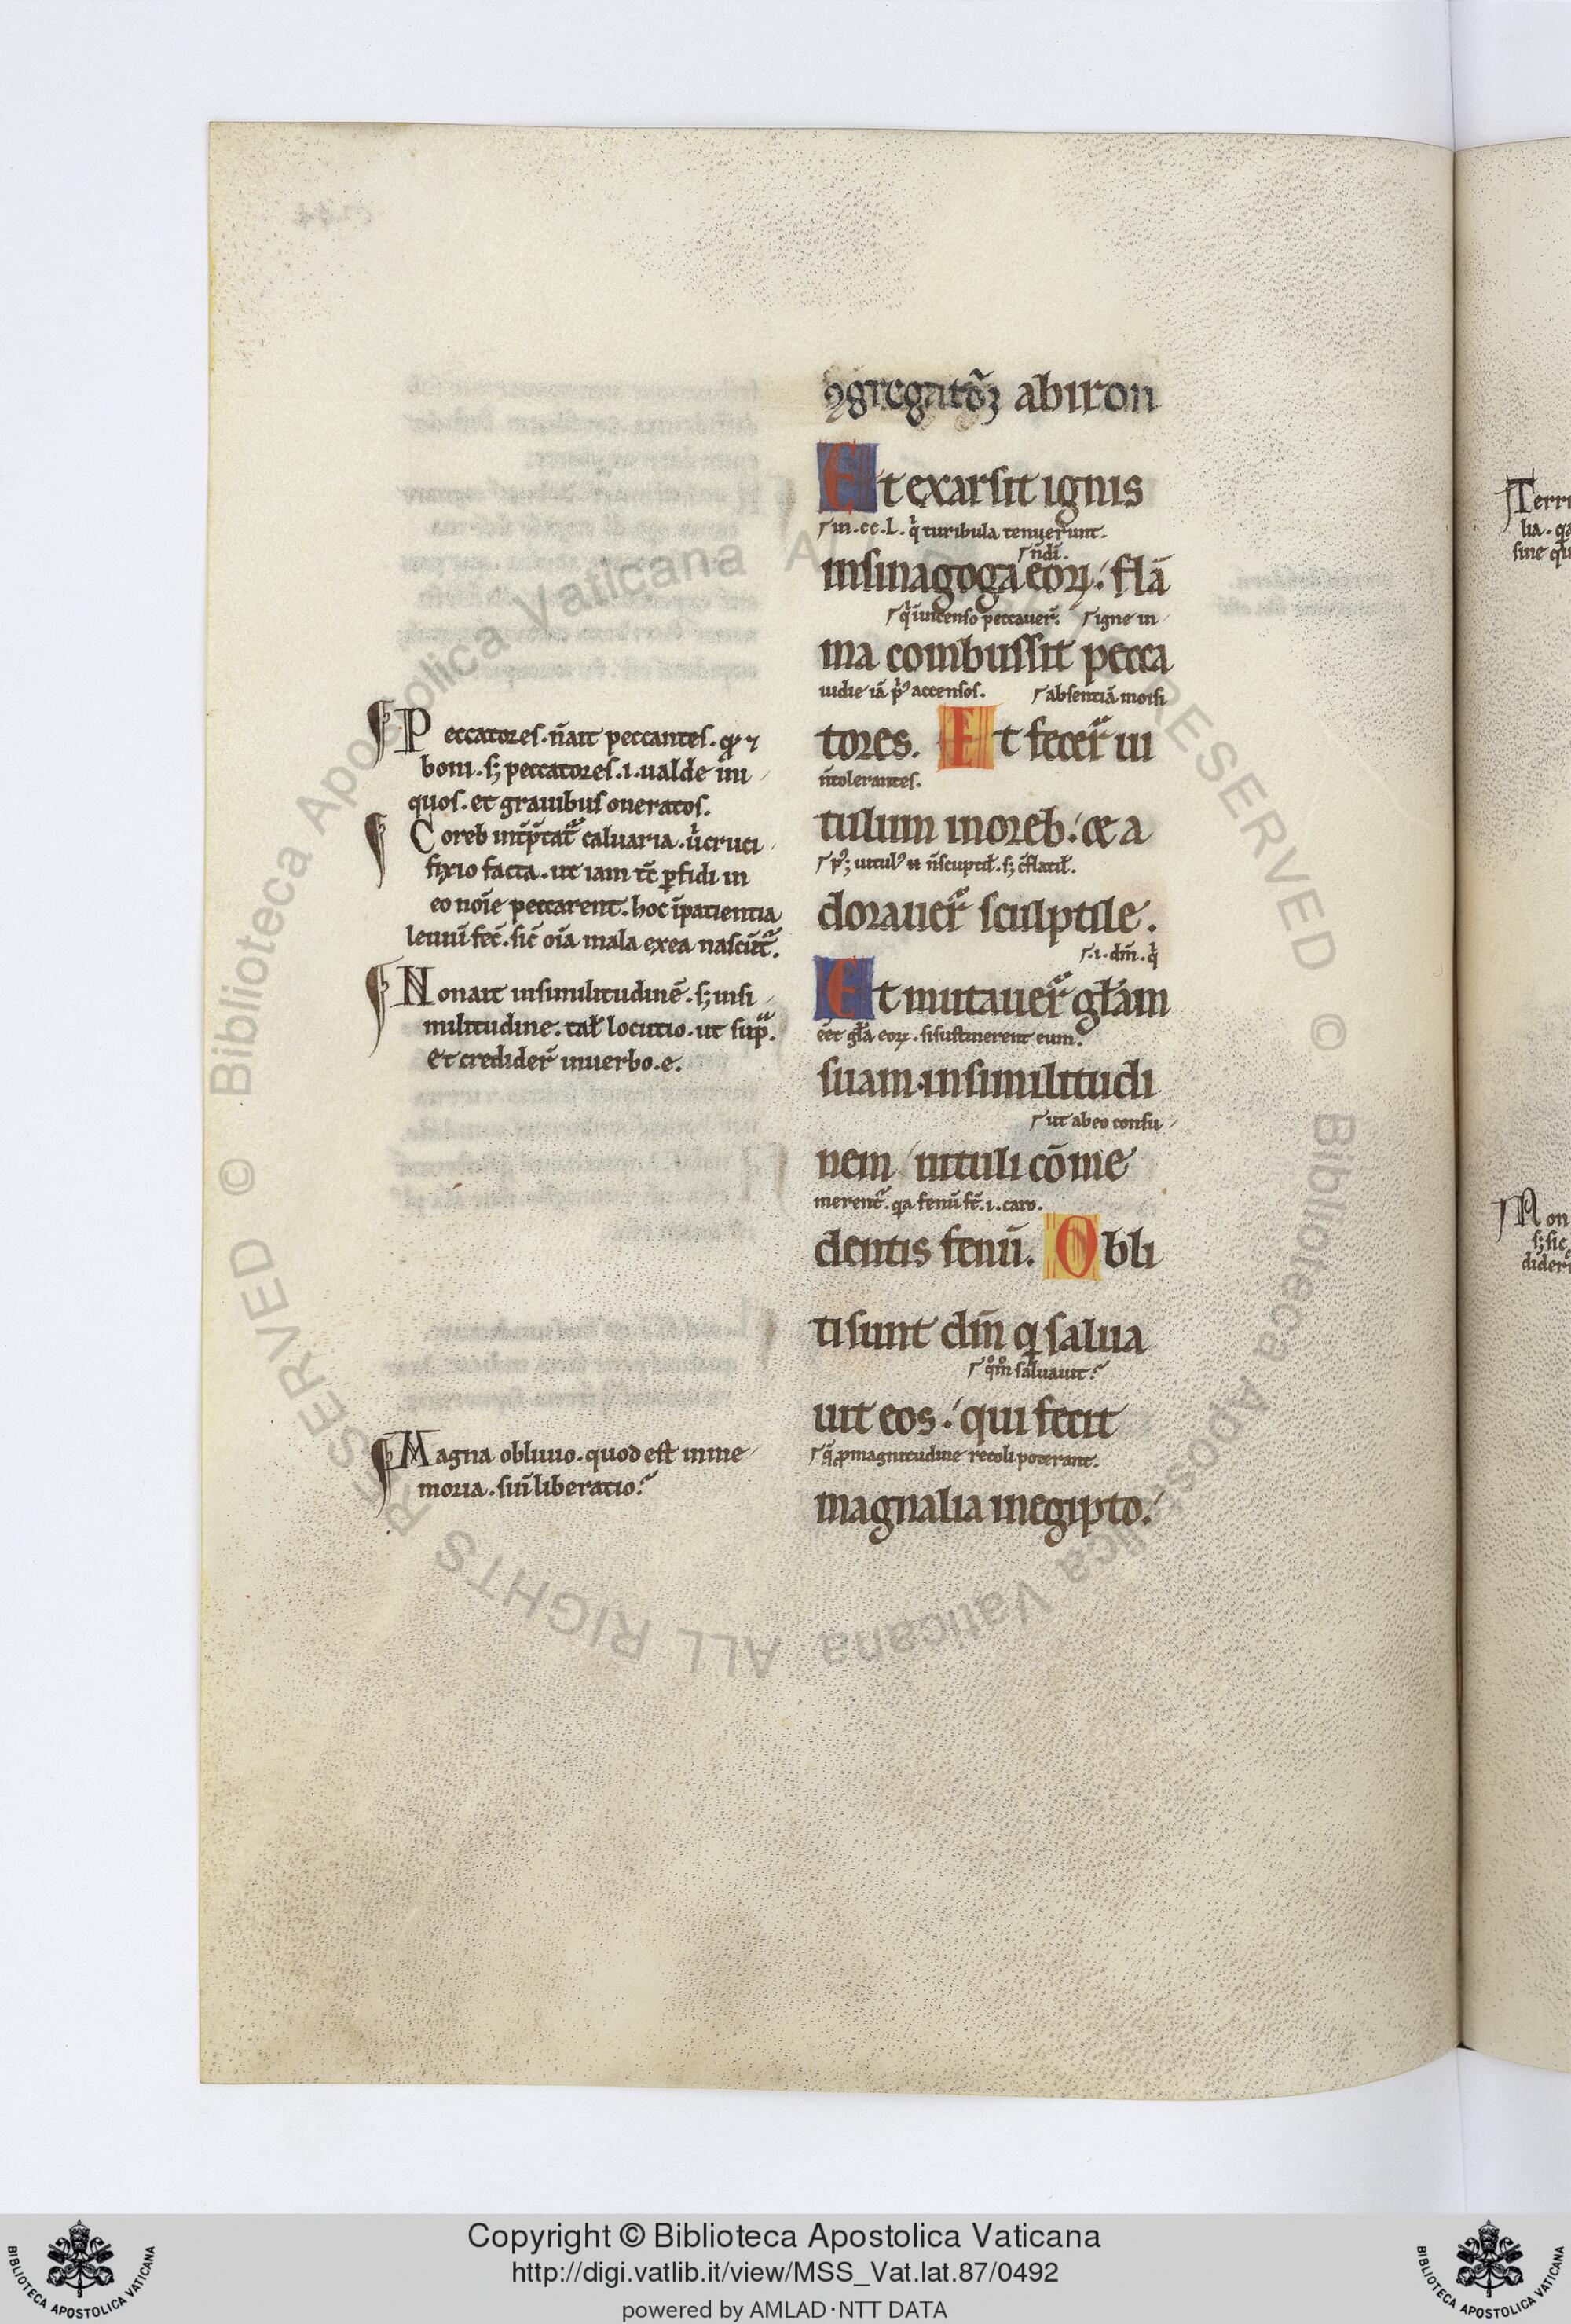 ꝯgregatõꝫ abiron
Et exarsit ignis
.cc.L. turibula tenuerunt.
insinagoga eoꝝ. flã
peccauer̃. igne in
ma combussit pecca
accensos. absentiã moisi
tores. Et fecer̃ ui
ñtolerantes.
tulum inoreb. & a
dorauer̃ sculptile.
.i. dm̃. q̇
Et mutauer̃ gl̃am
eẽt gl̃a eoꝝ. sisustinerent eum.
suam insimilitudi
ut abeo consu
nem uituli cõme
merent̃. qa fenũ fc̃.i.caro.
dentis fenũ. Obli
ti sunt dm̃ q salua
saluauit.
uit eos. qui fecit
magnitudine recoli poterant.
magnalia inegipto.
Peccatores. ñ ait peccantes.
boni. sꝫ peccatores.i.ualde ini
quos. et grauibus oneratos.
Coreb caluaria. cruci
fixio facta. ut iam tc̃ ꝑfidi in
eo noĩe peccarent. hoc ĩpatientia
fec̃. sic̃ oĩa mala exea nascũt̃.
Non ait insimilitudinẽ. sꝫ insi
militudine. tal̃ locutio. ut sup̃.
Et credider̃ inuerbo.e.
Magna obliuio. quod est inme
moria. liberatio.
Terri
lia. qa
sine
Non
sꝫ sic
dider
Copyright © Biblioteca Apostolica Vaticana
http://digi.vatlib.it/view/MSS_Vat.lat.87/0492
powered by AMLAD·NTT DATA
BIBLIOTECA APOSTOLICA VATICANA
BIBLIOTECA APOSTOLICA VATICANA
© Biblioteca Apostolica Vaticana ALL RIGHTS RESERVED © Biblioteca Apostolica Vaticana ALL RIGHTS RESERVED